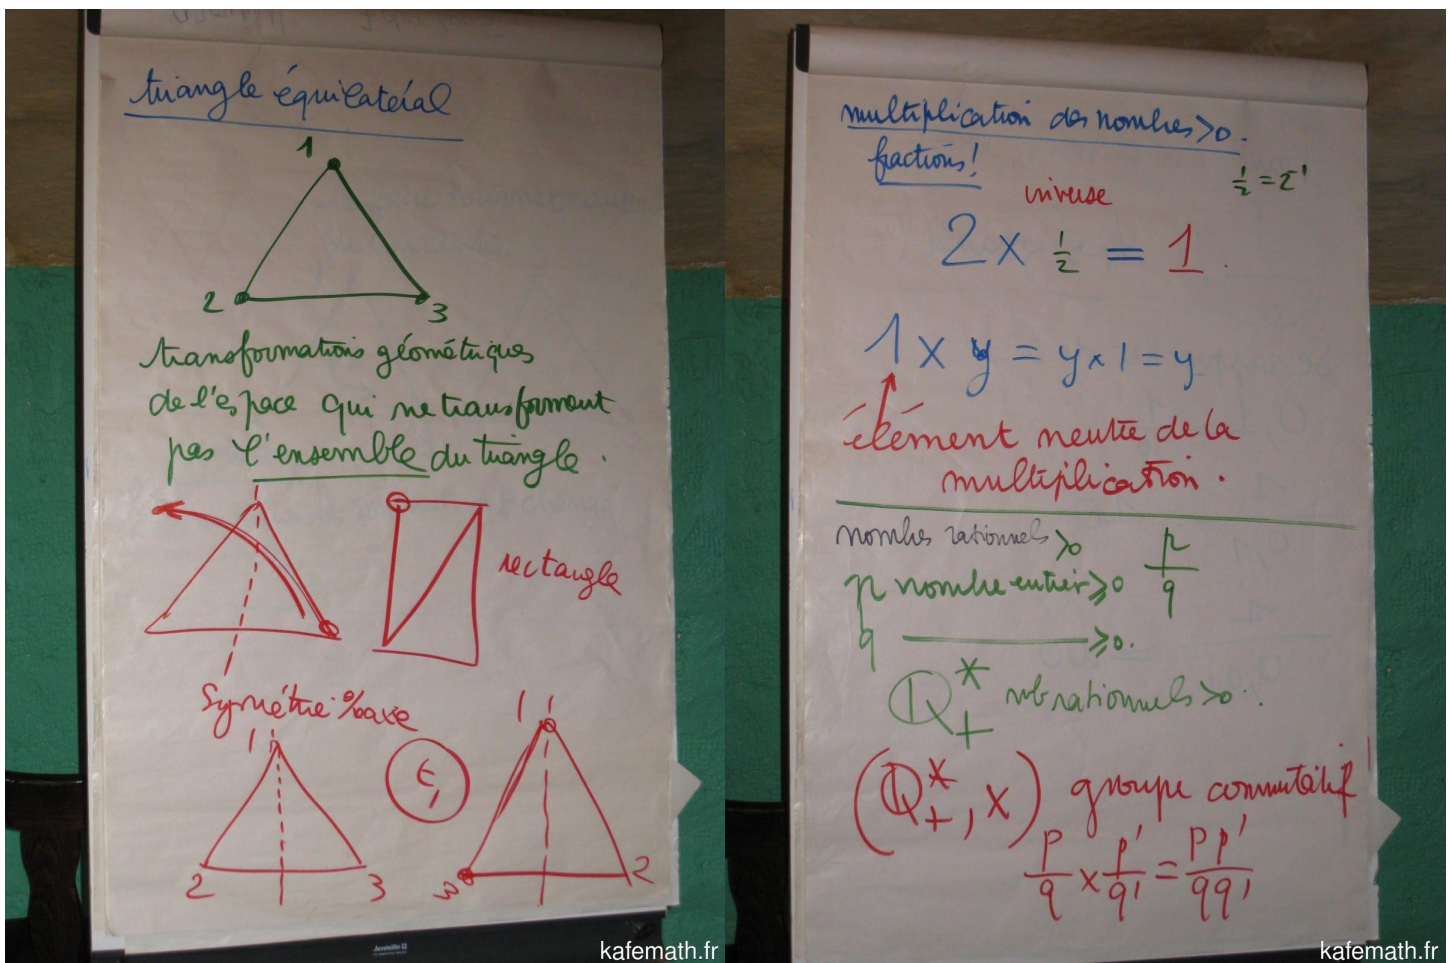 triangle équilatéral
1
2
3
transformations géométriques
de l'espace qui ne transforment
pas l'ensemble du triangle.
rectangle
Symétrie %axe
1
1
2
3
t₁
1
3
2
kafemath.fr
multiplication des nombres >0.
fractions!
½ = 2⁻¹
inverse
2 x ½ = 1
1 x y = y x 1 = y
élément neutre de la
multiplication.
nombres rationnels >0
p/q
p nombre entier ≥0
q ——— ≥0.
ℚ*₊ nb rationnels >0.
(ℚ*₊, x) groupe commutatif
p/q x p'/q' = pp'/qq'
kafemath.fr